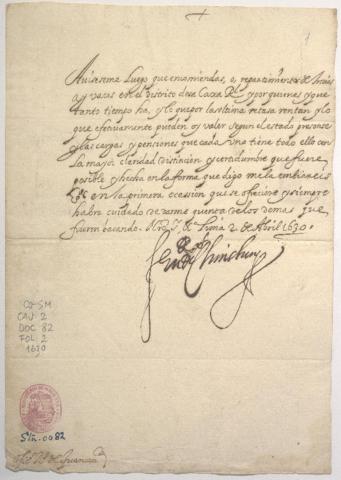 +
1
Auiseme luego que encomiendas, o, repartimientos de Indios
ay vacas en el districto desa Caxa R.l y por quienes y que
tanto tiempo ha, y lo que por la ultima retasa rentan y lo
que efectiuamente pueden oy valer segun el estado presente
y las cargas y pensiones que cada una tiene todo ello con
la mayor claridad distincion y certidumbre que fuere
posible y hecha en la forma que digo me la embiareis
en la primera ocassion que se ofreciere y siempre
habra cuidado de darme quenta de los demas que
fueren vacando. de Lima 2 de Abril 1630.
El Conde de Chinchon
CO-SM
CAJ. 2
DOC 82
FOL. 2
1630
Sin.-0082